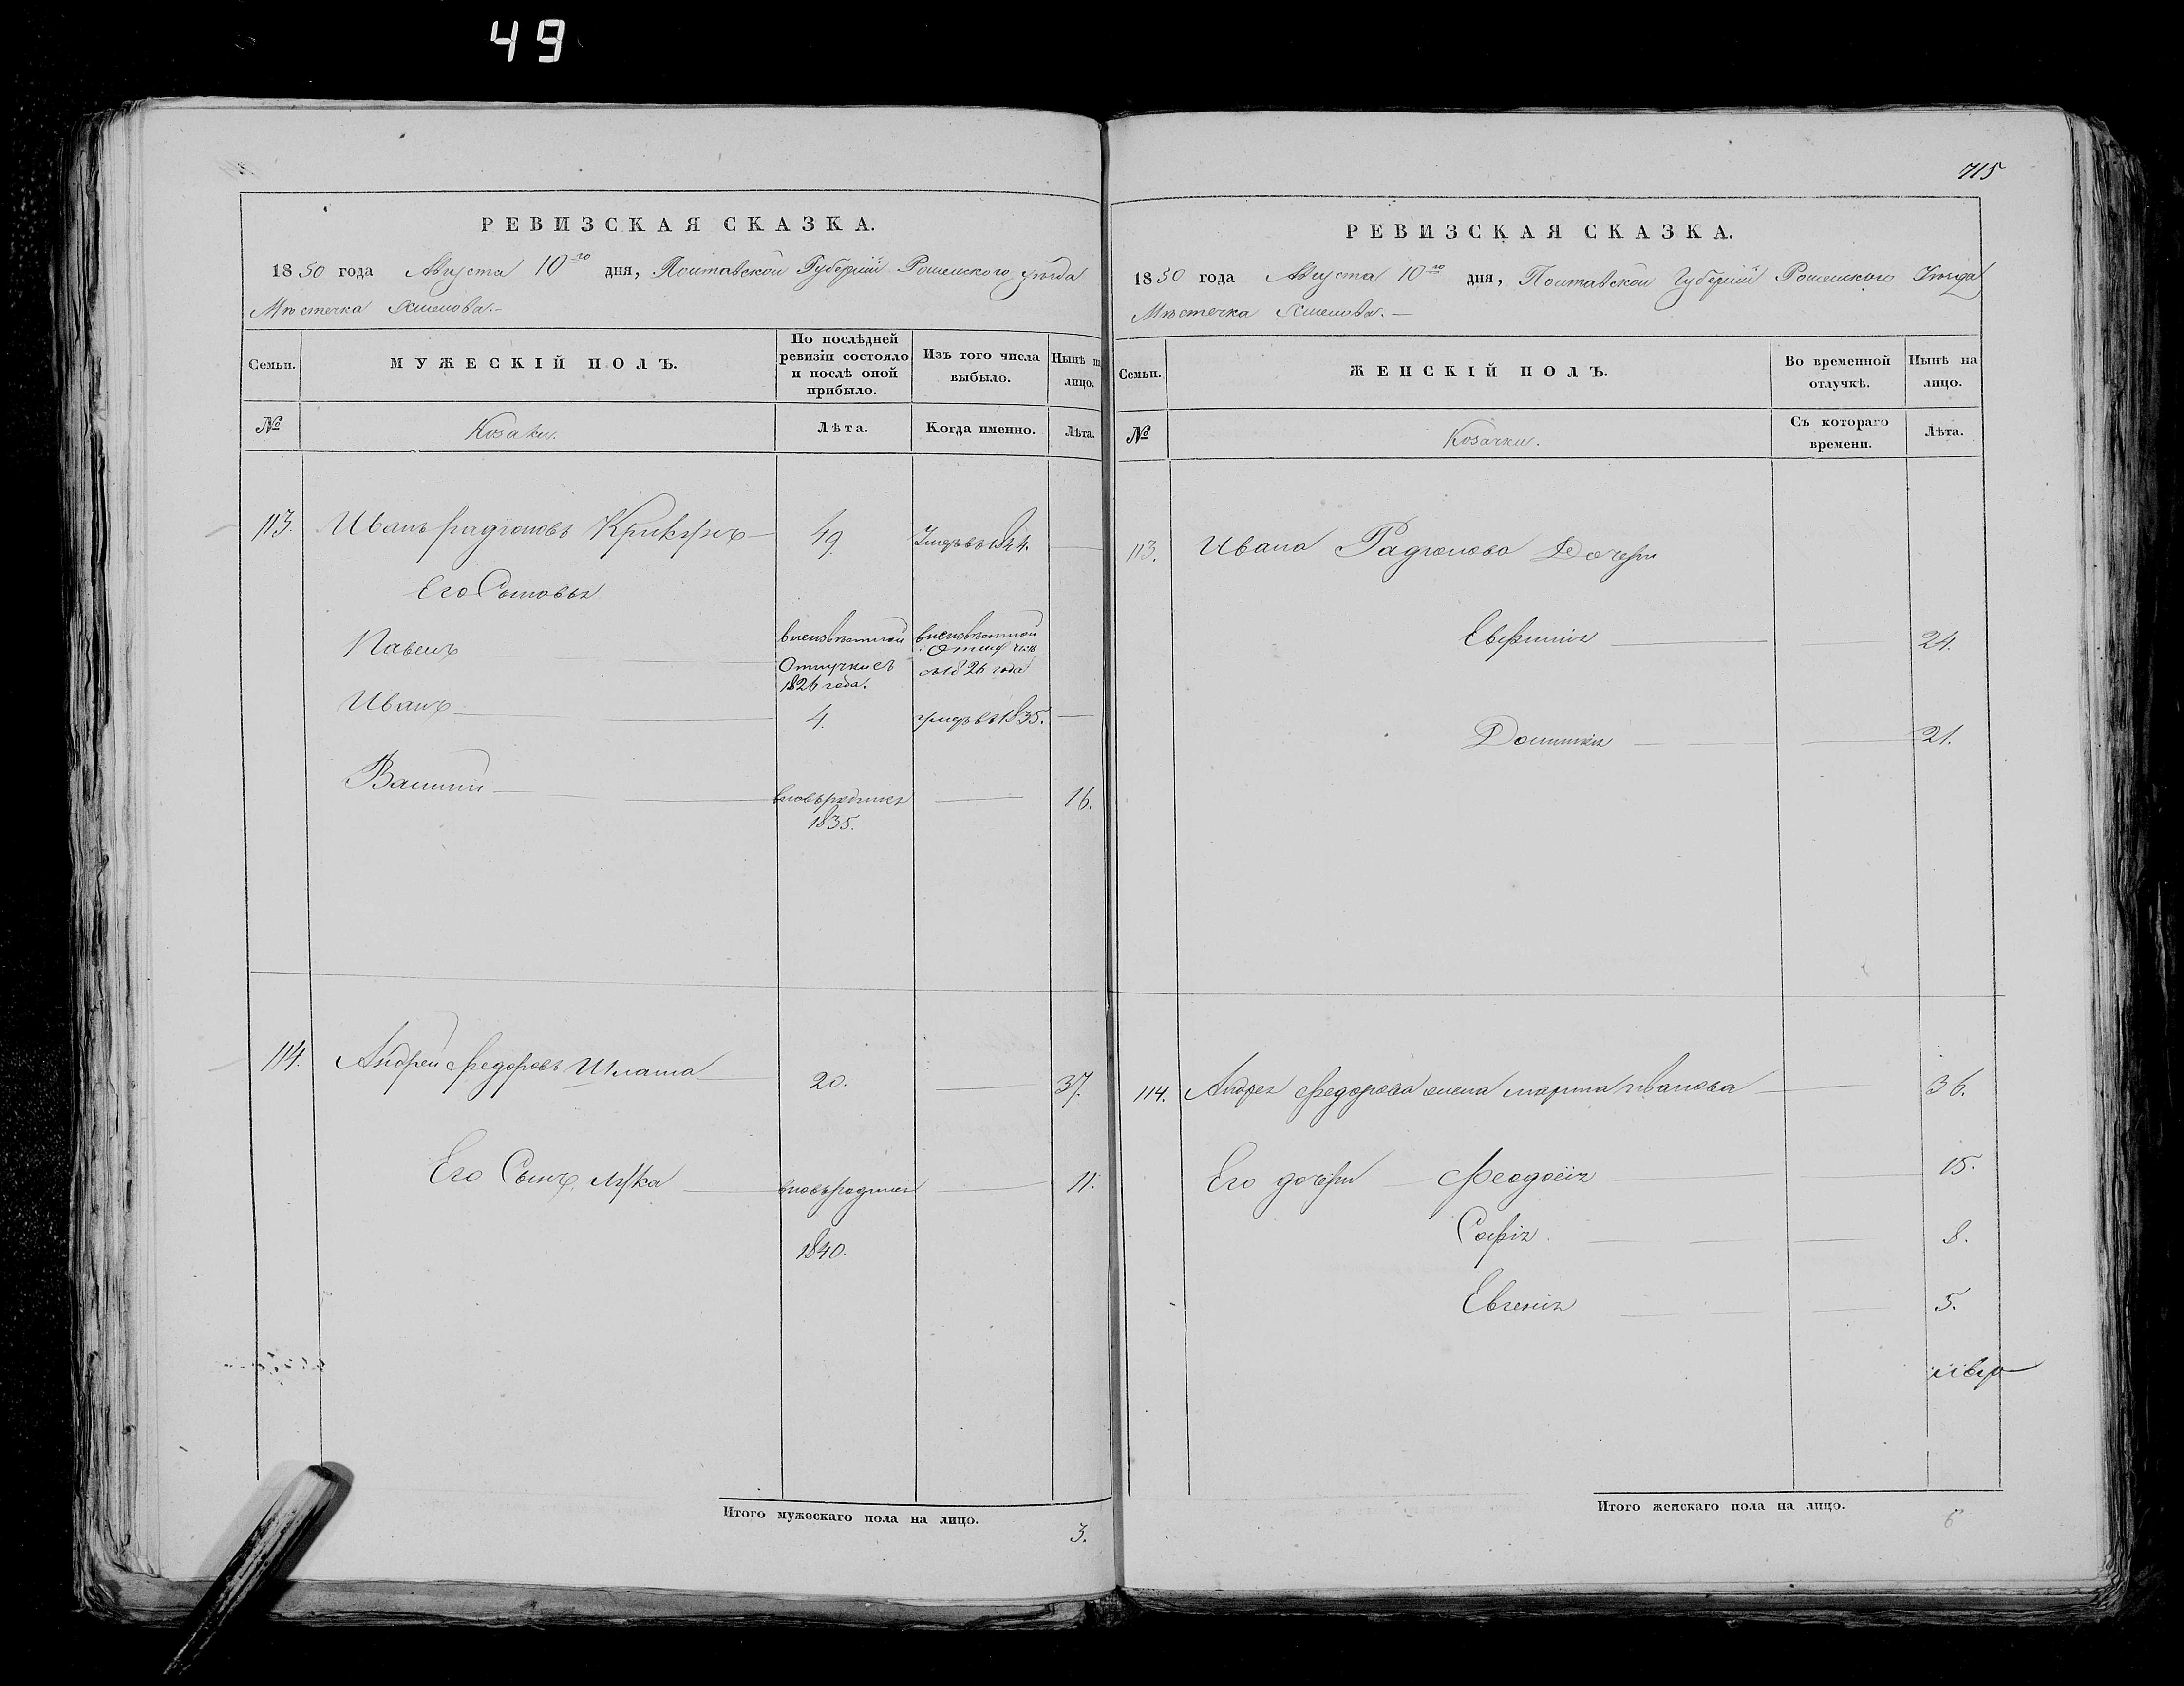 49
РЕВИЗСКАЯ СКАЗКА.
1850 года Августа 10го дня, Полтавской Губерніи Роменского уѣзда
Мѣстечка Хмелова.-
Семьи.
МУЖЕСКІЙ ПОЛЪ.
По послѣдней ревизіи состояло и послѣ оной прибыло.
Изъ того числа выбыло.
Нынѣ на лицо.
№
Козаки.
Лѣта.
Когда именно.
Лѣта.
113. Иванъ Радіоновъ 49 Умеръ въ 1844.
Его Сыновья
Павелъ
въ неизвѣстной отлучке съ 1826 года.
въ неизвѣстной
26 года
Иванъ 4. умеръ въ 1835.
Василий вновь родился 16.
1835.
114. Андрей Федоровъ 20. 37.
Его Сынъ Лука вновь родился 11.
1840.
Итого мужескаго пола на лицо.
3.
715
РЕВИЗСКАЯ СКАЗКА.
1850 года Августа 10го дня, Полтавской Губерніи Роменского Уѣзда
Мѣстечка Хмелова.-
Семьи.
ЖЕНСКІЙ ПОЛЪ.
Во временной отлучкѣ.
Нынѣ на лицо.
№
Козачки.
Съ котораго времени.
Лѣта.
113. Ивана Радіонова Дочери
Евфимія 24.
21.
114. Андрея Федорова жена Марина Иванова 36.
Его дочери Феодосія 15.
Софія 8.
Евгенія 5.
Итого женскаго пола на лицо.
6